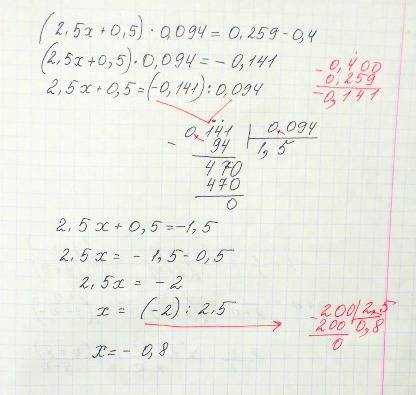 (2,5x+0,5)·0,094=0,259-0,4
(2,5x+0,5)·0,094=-0,141
2,5x+0,5=(-0,141):0,094
-0,400
0,259
-0,141
- 0,141 | 0,094
94 | 1,5
470
470
0
2,5x+0,5=-1,5
2,5x=-1,5-0,5
2,5x=-2
x=(-2):2.5
-200|2,5
200|0,8
0
x=-0,8